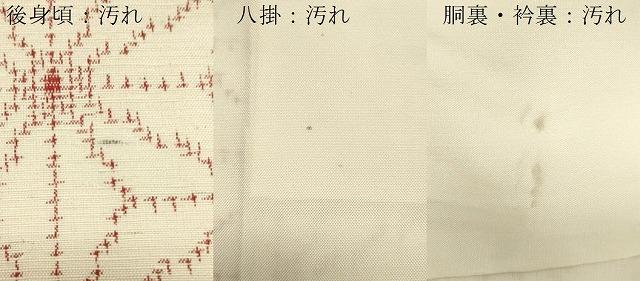 後身頃：汚れ
八掛：汚れ
胴裏・衿裏：汚れ